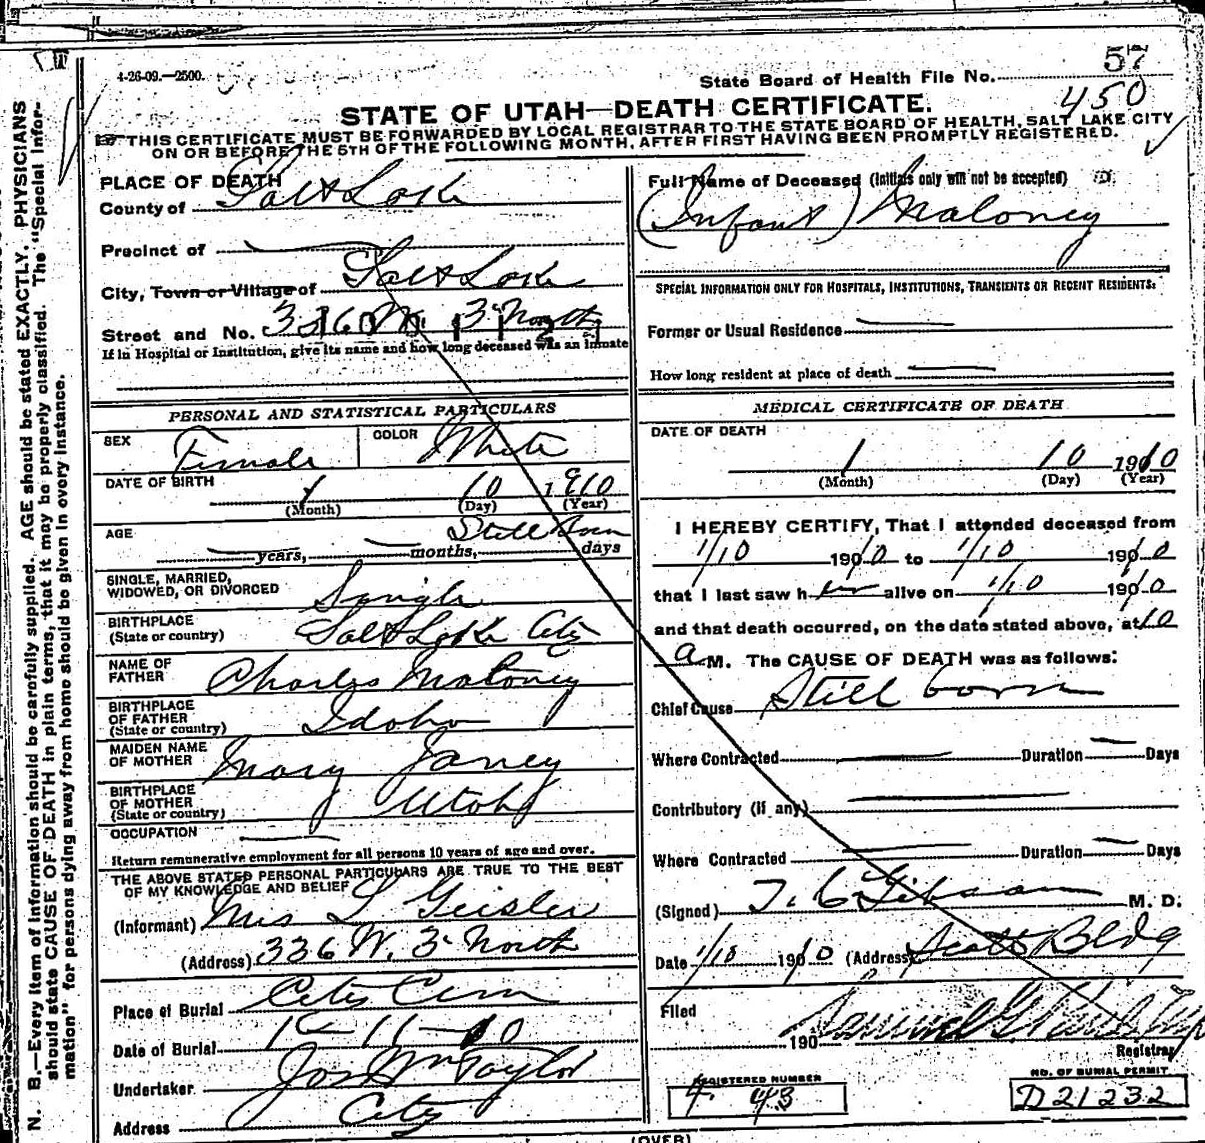 4-26-09.—2500.
State Board of Health File No. 57
450
STATE OF UTAH—DEATH CERTIFICATE.
THIS CERTIFICATE MUST BE FORWARDED BY LOCAL REGISTRAR TO THE STATE BOARD OF HEALTH, SALT LAKE CITY
ON OR BEFORE THE 5TH OF THE FOLLOWING MONTH, AFTER FIRST HAVING BEEN PROMPTLY REGISTERED.
N. B.—Every item of information should be carefully supplied. AGE should be stated EXACTLY. PHYSICIANS
should state CAUSE OF DEATH in plain terms, that it may be properly classified. The "Special Infor-
mation" for persons dying away from home should be given in every instance.
PLACE OF DEATH
County of Salt Lake
Precinct of
City, Town or Village of Salt Lake
Street and No. 336 W. 3 North
If in Hospital or Institution, give its name and how long deceased was an inmate
PERSONAL AND STATISTICAL PARTICULARS
SEX Female COLOR White
DATE OF BIRTH 1 10 1910
(Month) (Day) (Year)
AGE Still Born
years, months, days
SINGLE, MARRIED,
WIDOWED, OR DIVORCED Single
BIRTHPLACE
(State or country) Salt Lake City
NAME OF
FATHER Charles Maloney
BIRTHPLACE
OF FATHER
(State or country) Idaho
MAIDEN NAME
OF MOTHER Mary Janey
BIRTHPLACE
OF MOTHER
(State or country) Utah
OCCUPATION
Return remunerative employment for all persons 10 years of age and over.
THE ABOVE STATED PERSONAL PARTICULARS ARE TRUE TO THE BEST
OF MY KNOWLEDGE AND BELIEF
(Informant) Mrs L Geisler
(Address) 336 W. 3 North
Place of Burial City Cem
Date of Burial 1-11-10
Undertaker Jos Wm Taylor
Address City
Full Name of Deceased (Initials only will not be accepted)
(Infant) Maloney
SPECIAL INFORMATION ONLY FOR HOSPITALS, INSTITUTIONS, TRANSIENTS OR RECENT RESIDENTS:
Former or Usual Residence
How long resident at place of death
MEDICAL CERTIFICATE OF DEATH
DATE OF DEATH
1 10 1910
(Month) (Day) (Year)
I HEREBY CERTIFY, That I attended deceased from
1/10 1910 to 1/10 1910
that I last saw her alive on 1/10 1910
and that death occurred, on the date stated above, at 10
a M. The CAUSE OF DEATH was as follows:
Chief Cause Still born
Where Contracted Duration Days
Contributory (if any)
Where Contracted Duration Days
(Signed) T. C. Gibson M. D.
Date 1/10 1910 (Address) Scott Bldg
Filed
190
Registrar
REGISTERED NUMBER
43
NO. OF BURIAL PERMIT
D21232
(OVER)